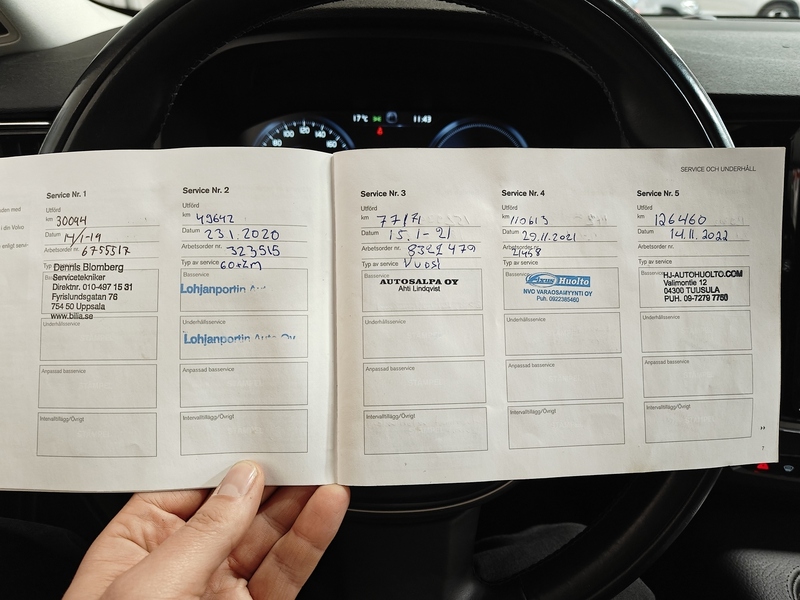 17°C 11:43
80 100 120 140 160
SERVICE OCH UNDERHÅLL
Service Nr. 1
Utförd
km 30094
Datum 14/1-19
Arbetsorder nr. 6755517
Dennis Blomberg
Servicetekniker
Direktnr. 010-497 15 31
Fyrislundsgatan 76
754 50 Uppsala
www.bilia.se
Underhållsservice
Anpassad basservice
Intervalltillägg/Övrigt
Service Nr. 2
Utförd
km 49642
Datum 23.1.2020
Arbetsorder nr. 323515
Typ av service
Basservice
Lohjanportin
Underhållsservice
Lohjanportin Auto Oy
Anpassad basservice
Intervalltillägg/Övrigt
Service Nr. 3
Utförd
km
Datum 15.1-21
Arbetsorder nr. 8322479
Typ av service Vuosi
Basservice
AUTOSALPA OY
Ahti Lindqvist
Underhållsservice
Anpassad basservice
Intervalltillägg/Övrigt
Service Nr. 4
Utförd
km 110613
Datum 29.11.2021
Arbetsorder nr.
Typ av service
Huolto
NVO VARAOSAMYYNTI OY
Puh. 0922385460
Underhållsservice
Anpassad basservice
Intervalltillägg/Övrigt
Service Nr. 5
Utförd
km 126460
Datum 14.11.2022
Arbetsorder nr.
Typ av service
HJ-AUTOHUOLTO.COM
Valimontie 12
04300 TUUSULA
PUH. 09-7279 7750
Underhållsservice
Anpassad basservice
Intervalltillägg/Övrigt